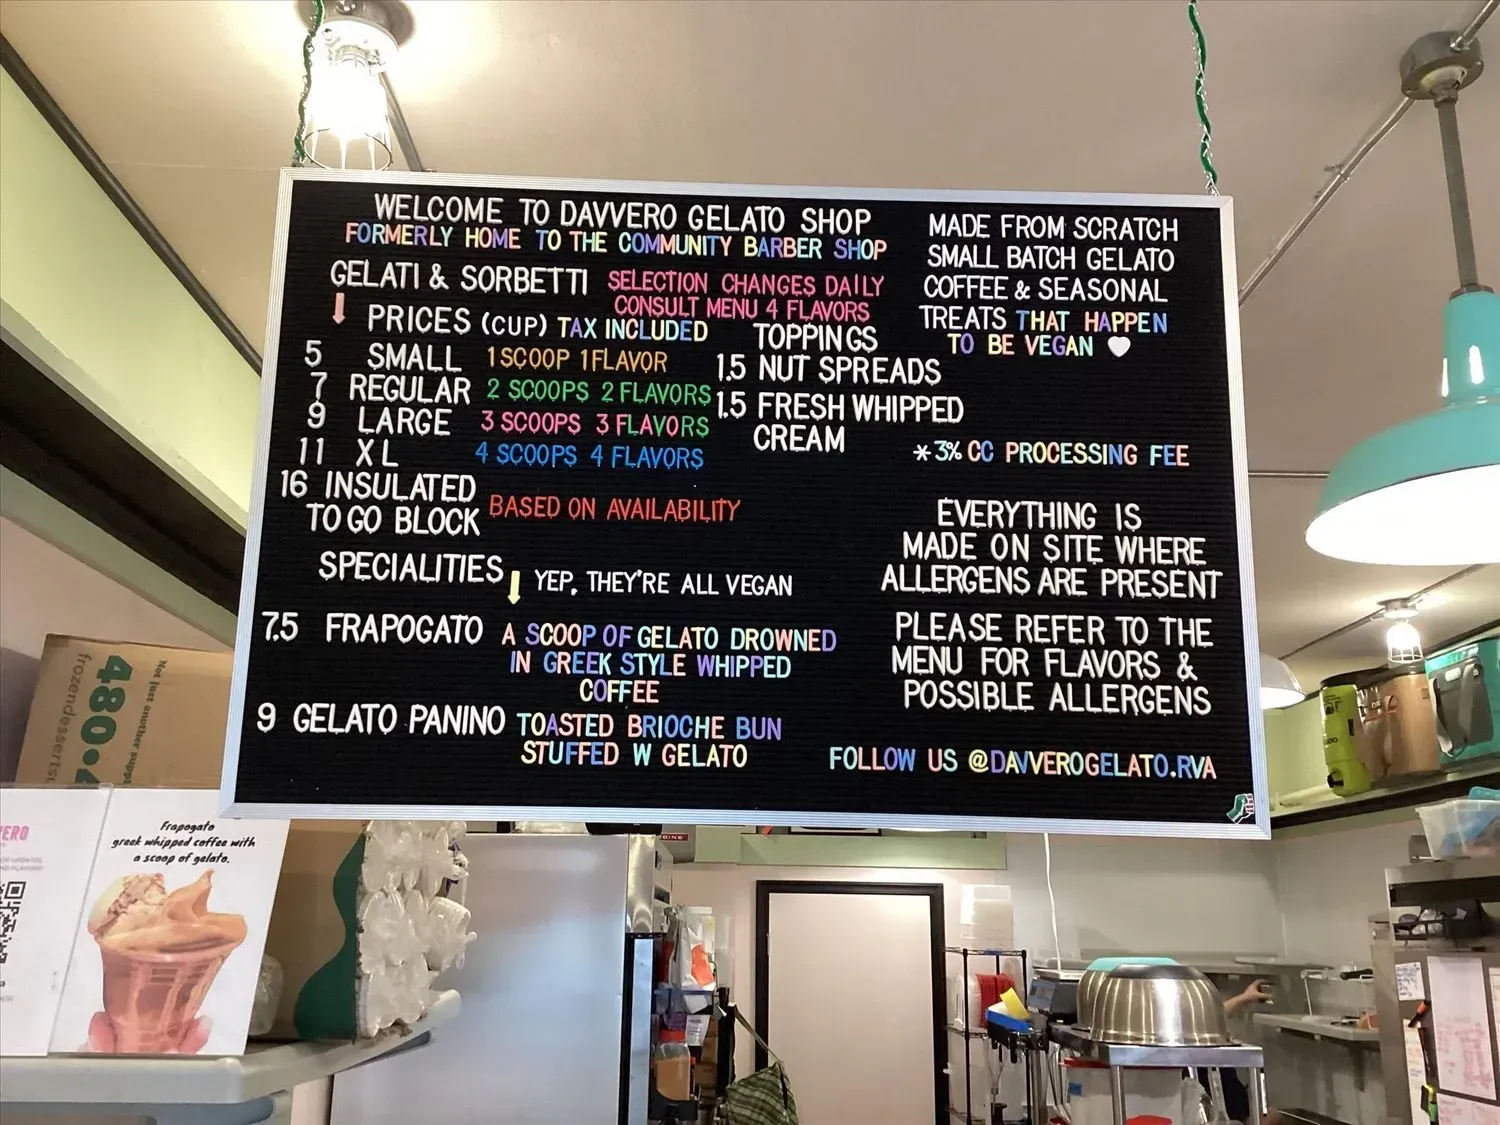 WELCOME TO DAVVERO GELATO SHOP
FORMERLY HOME TO THE COMMUNITY BARBER SHOP
GELATI & SORBETTI
SELECTION CHANGES DAILY
CONSULT MENU 4 FLAVORS
PRICES (CUP) TAX INCLUDED
5 SMALL 1 SCOOP 1 FLAVOR
7 REGULAR 2 SCOOPS 2 FLAVORS
9 LARGE 3 SCOOPS 3 FLAVORS
11 XL 4 SCOOPS 4 FLAVORS
16 INSULATED
TO GO BLOCK
BASED ON AVAILABILITY
TOPPINGS
1.5 NUT SPREADS
1.5 FRESH WHIPPED
CREAM
SPECIALITIES
YEP, THEY'RE ALL VEGAN
7.5 FRAPOGATO A SCOOP OF GELATO DROWNED
IN GREEK STYLE WHIPPED
COFFEE
9 GELATO PANINO TOASTED BRIOCHE BUN
STUFFED W GELATO
MADE FROM SCRATCH
SMALL BATCH GELATO
COFFEE & SEASONAL
TREATS THAT HAPPEN
TO BE VEGAN
*3% CC PROCESSING FEE
EVERYTHING IS
MADE ON SITE WHERE
ALLERGENS ARE PRESENT
PLEASE REFER TO THE
MENU FOR FLAVORS &
POSSIBLE ALLERGENS
FOLLOW US @DAVVEROGELATO.RVA
Not just another supp
480.4
frozendesserts
Frapogato
greek whipped coffee with
a scoop of gelato.